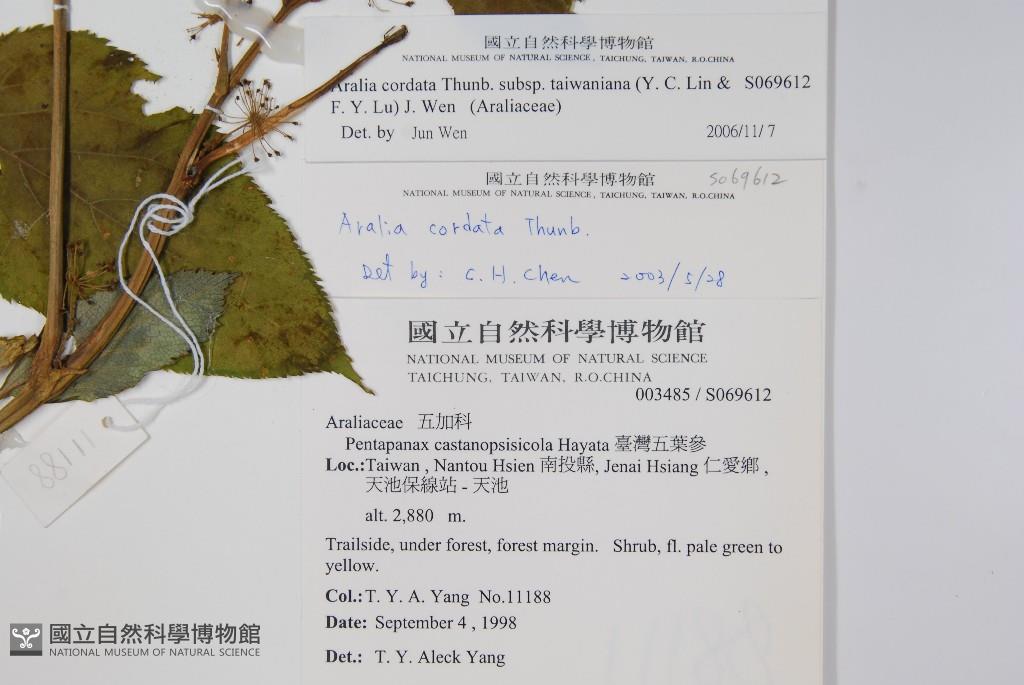 國立自然科學博物館
NATIONAL MUSEUM OF NATURAL SCIENCE, TAICHUNG, TAIWAN, R.O.CHINA
Aralia cordata Thunb. subsp. taiwaniana (Y. C. Lin & S069612
F. Y. Lu) J. Wen (Araliaceae)
Det. by Jun Wen 2006/11/7
國立自然科學博物館 S069612
NATIONAL MUSEUM OF NATURAL SCIENCE, TAICHUNG, TAIWAN, R.O.CHINA
Aralia cordata Thunb.
Det by: C. H. Chen 2003/5/28
國立自然科學博物館
NATIONAL MUSEUM OF NATURAL SCIENCE
TAICHUNG, TAIWAN, R.O.CHINA
003485 / S069612
Araliaceae 五加科
Pentapanax castanopsisicola Hayata 臺灣五葉參
Loc.:Taiwan , Nantou Hsien 南投縣, Jenai Hsiang 仁愛鄉 ,
天池保線站 - 天池
alt. 2,880 m.
Trailside, under forest, forest margin. Shrub, fl. pale green to
yellow.
Col.: T. Y. A. Yang No.11188
Date: September 4 , 1998
Det.: T. Y. Aleck Yang
11188
國立自然科學博物館
NATIONAL MUSEUM OF NATURAL SCIENCE